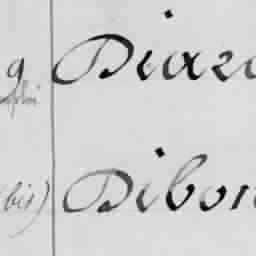 9 Diaz
(bis) Dibon